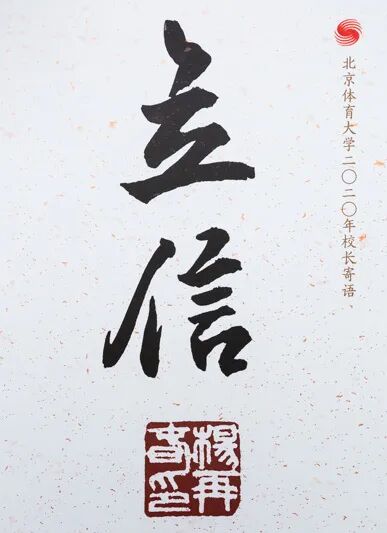 北京体育大学二〇二〇年校长寄语
立信
楊再
春印